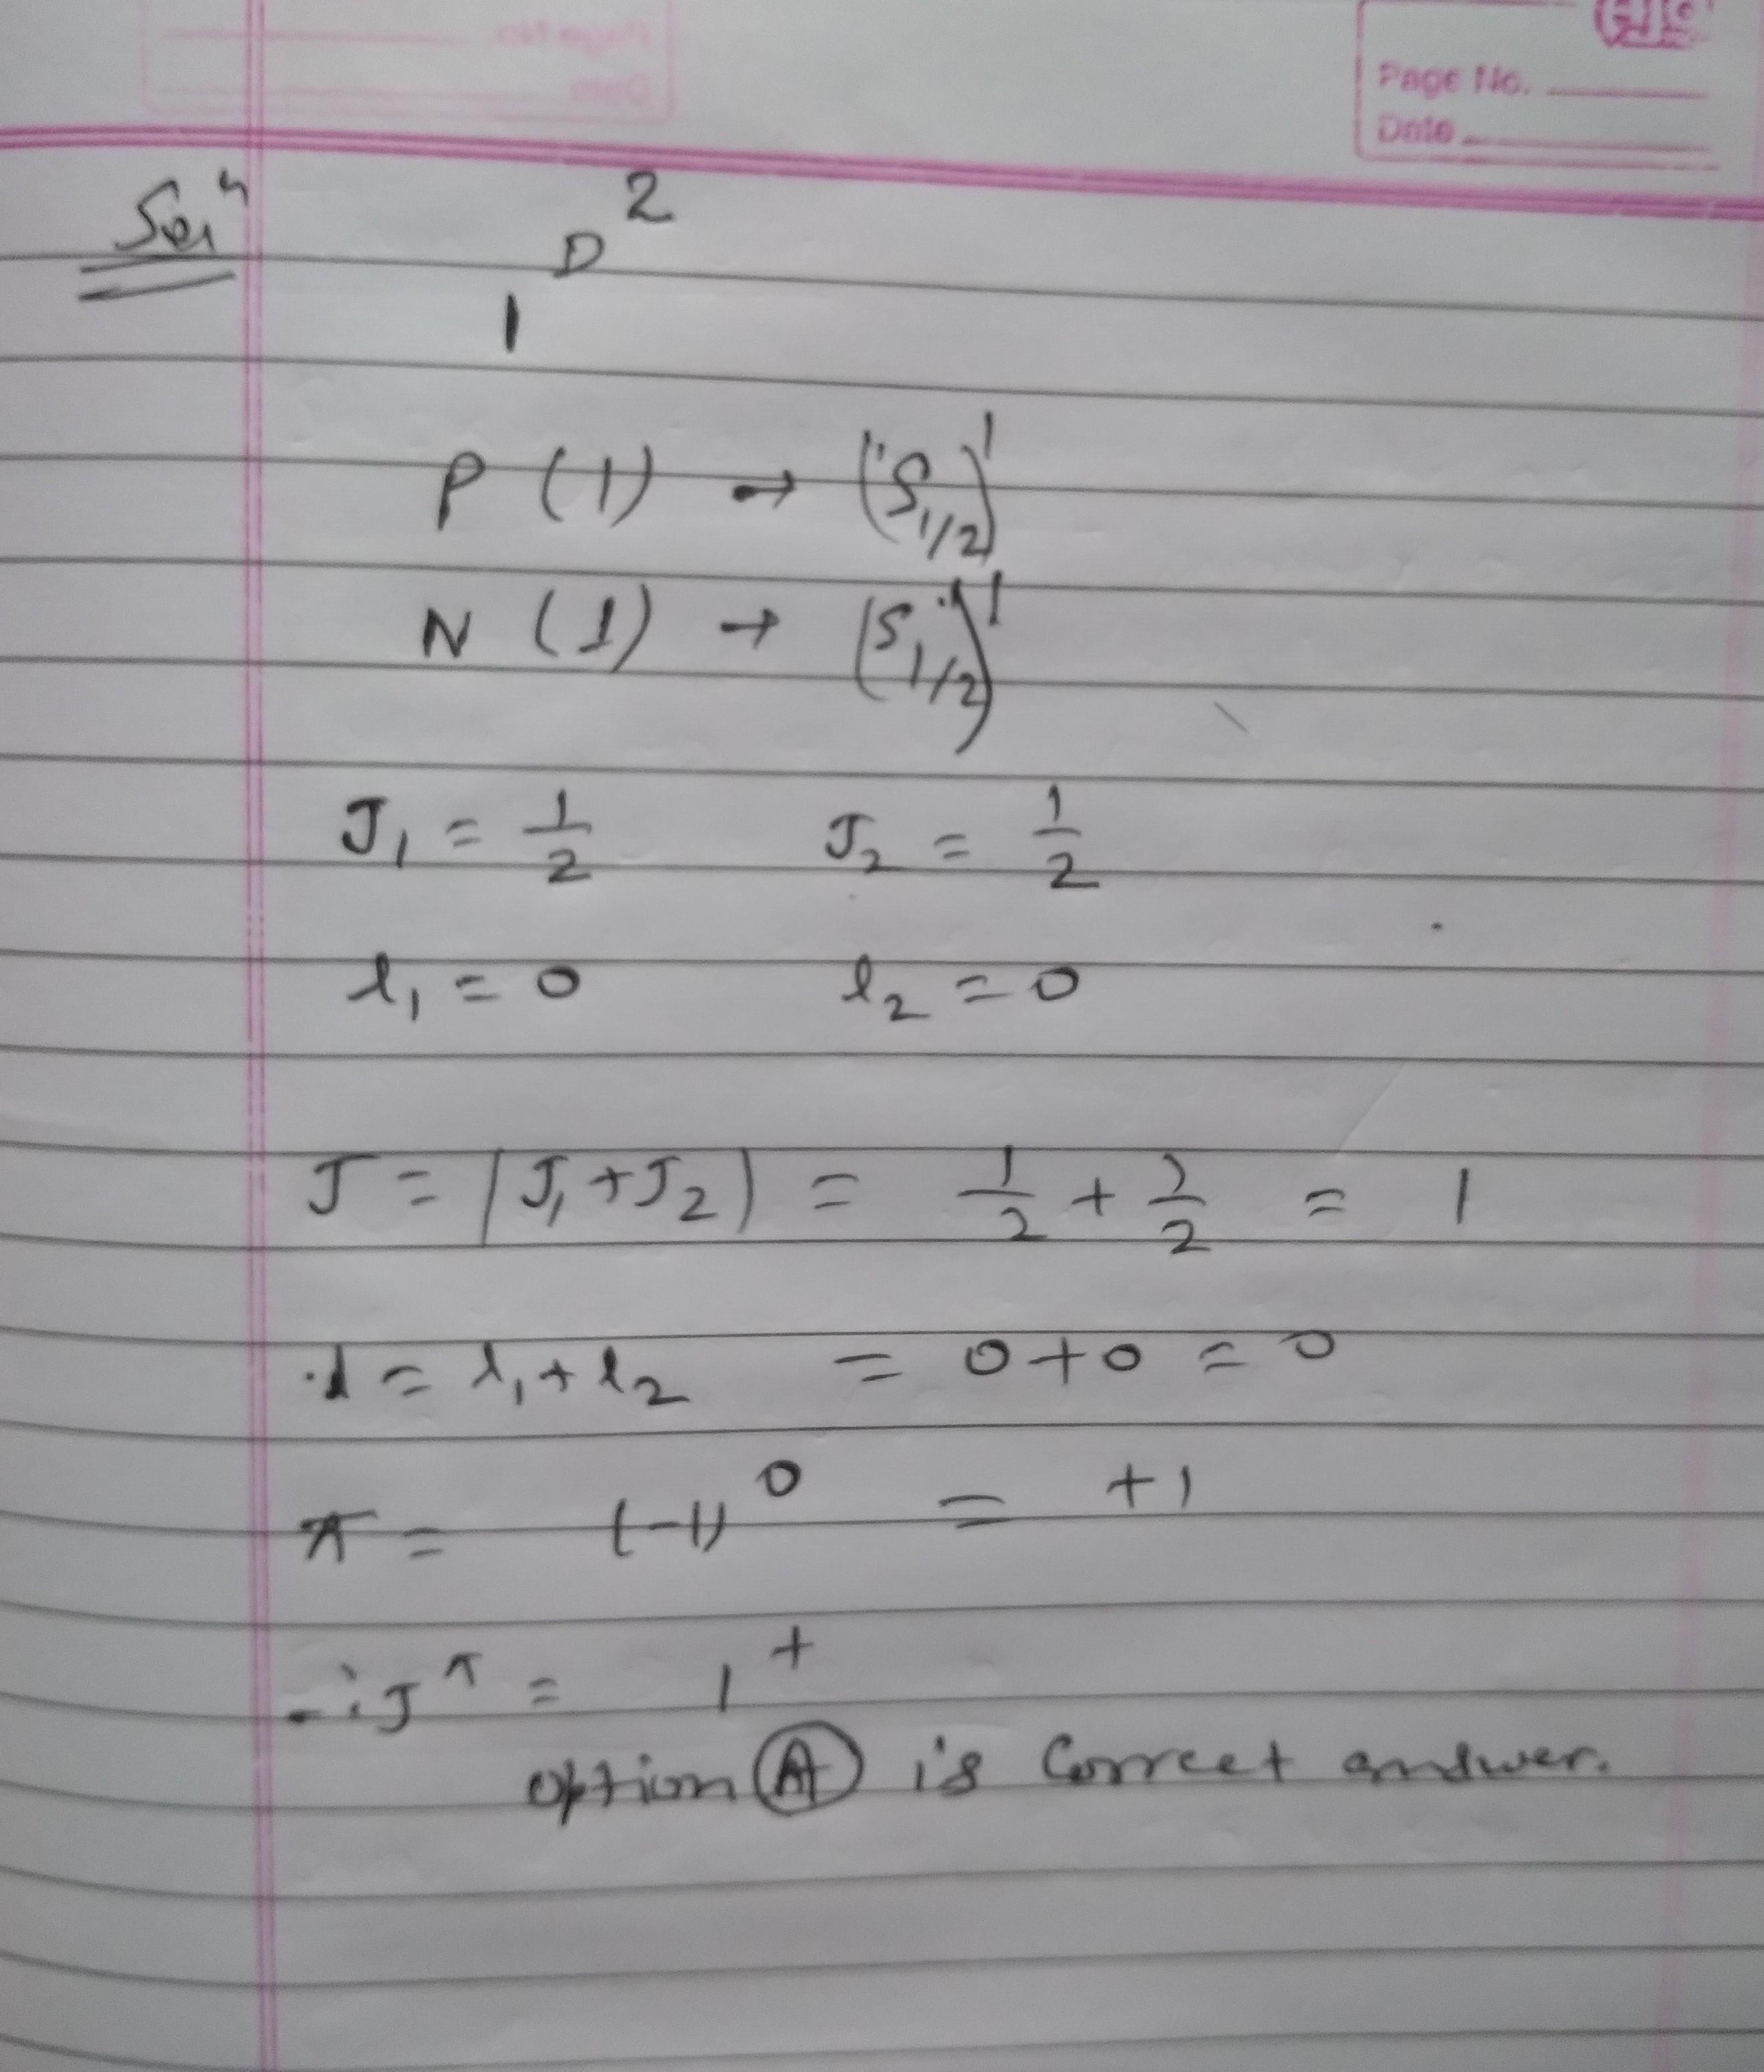 Page No.
Date
Solⁿ
₁D²
P (1) → (1S₁/₂)¹
N (1) → (S₁/₂)¹
J₁ = 1/2 J₂ = 1/2
l₁ = 0 l₂ = 0
J = |J₁+J₂| = 1/2 + 1/2 = 1
l = l₁+l₂ = 0+0 = 0
π = (-1)⁰ = +1
∴ J^π = 1⁺
option (A) is Correct answer.